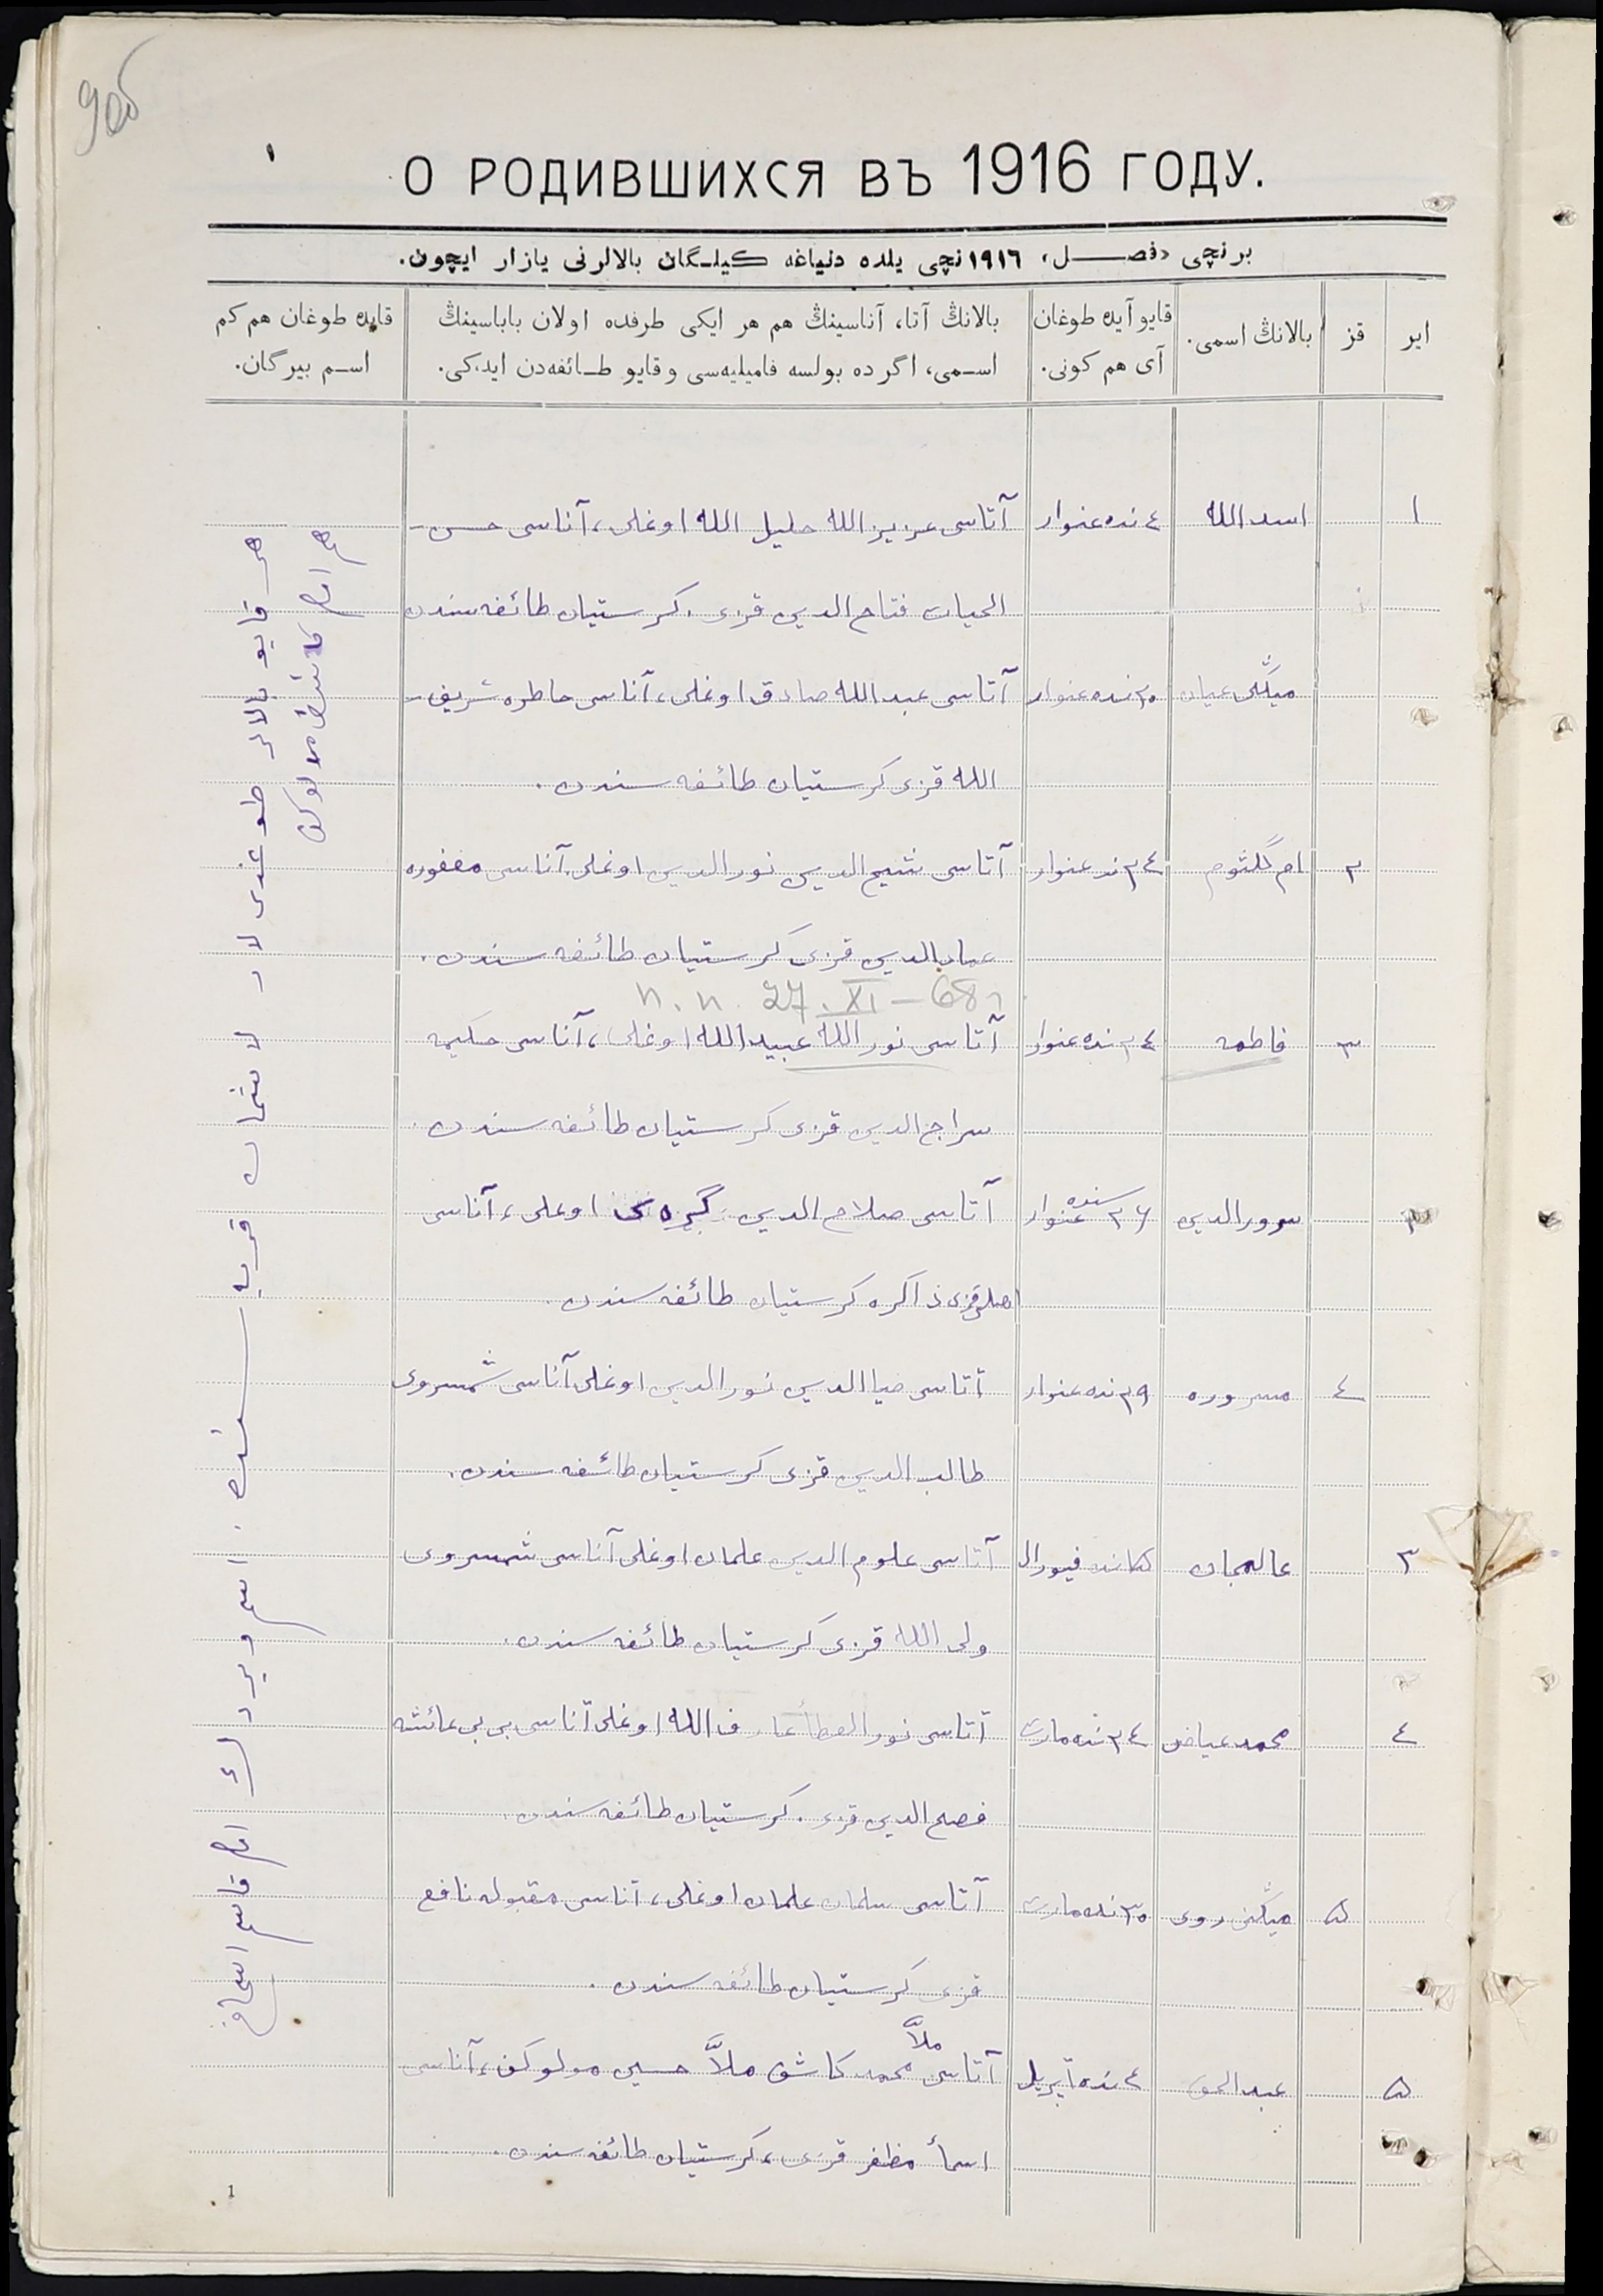 9об
О РОДИВШИХСЯ ВЪ 1916 ГОДУ.
برنچی «فصـــل» ١٩١٦ نچی یلده دنیاغه کیلـگان بالالرنی یازار ایچون.
ایر
قز
بالانڭ اسمی.
قایو آیده طوغان
آی هم کونی.
بالانڭ آتا، آناسینڭ هم هر ایکی طرفده اولان باباسینڭ
اسـمی، اگر ده بولسه فامیلیه‌سی و قایو طـائفه‌دن ایدکی.
قایده طوغان هم کم
اسـم بیرگان.
١ اسد الله ٤ نده عنوار آتاسی عزیز الله خلیل الله اوغلی، آناسی حسن-
الحیات فتاح الدین قزی. کرستیان طائفه سندن
٢٠ نده عنوار آتاسی عبد الله صادق اوغلی، آناسی خاطره شریف-
الله قزی کرستیان طائفه سندن.
٢ ام گلثوم ٢٤ ند عنوار آتاسی شیخ الدین نور الدین اوغلی آناسی مغفوره
قزی کرستیان طائفه سندن.
п. п. 27. XI – 68 г
٣ فاطمه ٢٤ نده عنوار آتاسی نور الله عبید الله اوغلی، آناسی حکیمه
سراج الدین قزی کرستیان طائفه سندن.
٢ سرور الدین ٢٦ سنده عنوار آتاسی صلاح الدین اوغلی، آناسی
ذاکره کرستیان طائفه سندن.
٤ مسروره ٢٩ نده عنوار آتاسی ضیا الدین نور الدین اوغلی آناسی شمسروی
طالب الدین قزی کرستیان طائفه سندن.
٣ عالمجان فیورال آتاسی علوم الدین علمان اوغلی آناسی شمسروی
ولی الله قزی کرستیان طائفه سندن.
٤ محمد عیاض ٢٤ نده مارت آتاسی نور العطا الله اوغلی آناسی بی بی عائشه
فصح الدین قزی. کرستیان طائفه سندن.
٥ روی ٣٠ نده مارت آتاسی سلمان علمان اوغلی، آناسی مقبوله نافع
قزی کرستیان طائفه سندن.
ملاّ
٥ عبد الحق ٤ نده آپریل آتاسی محمد کاشف ملاّ حسین مولوکف، آناسی
اسمأ مظفر قزی، کرستیان طائفه سندن.
هر قایو بالالر طوغدی لار قریه سنده. اسم ویردك امام
هم امام کاشف ملالوکف
1